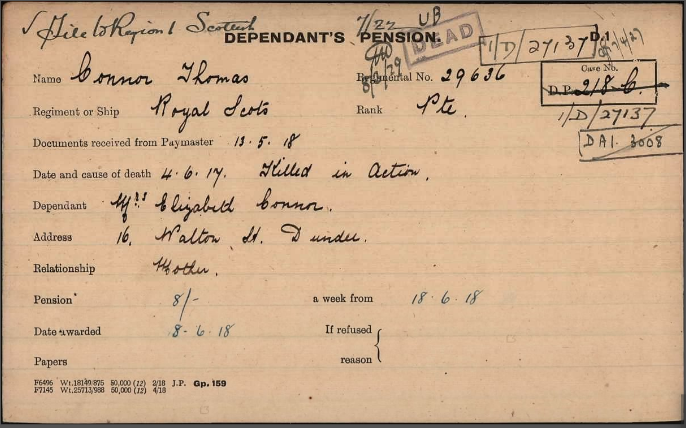 √ File to Region 1 Scottish 7/22 UB
DEPENDANT'S PENSION. D.1
DEAD
1/D/27137
Name Connor Thomas Regimental No. 29636
Case No.
D.P. 218-C.
1/D/27137
Regiment or Ship Royal Scots Rank Pte.
DAI. 3008
Documents received from Paymaster 13.5.18
Date and cause of death 4.6.17. Killed in Action.
Dependant Mrs Elizabeth Connor.
Address 16, Walton St. Dundee.
Relationship Mother.
Pension 8/- a week from 18.6.18
Date awarded 8.6.18 If refused
Papers reason
F6496 Wt.18149/875 50,000 (12) 2/18 J.P. Gp. 159
F7145 Wt.25713/988 50,000 (12) 4/18